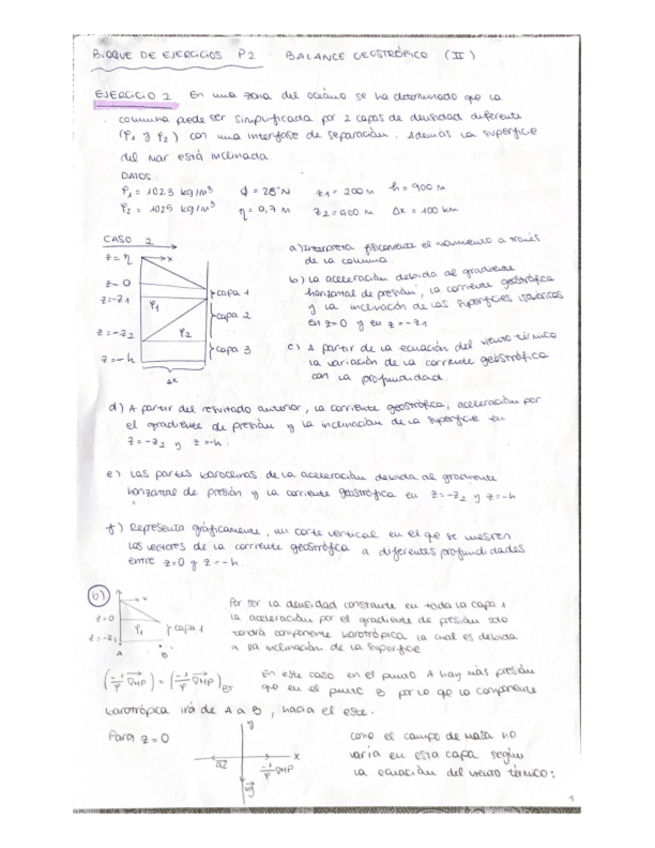 BLOQUE DE EJERCICIOS P2 · BALANCE GEOSTRÓFICO (II)
EJERCICIO 2 En una zona del océano se ha determinado que la
columna puede ser simplificada por 2 capas de densidad diferente
(ρ1 y ρ2) con una interfase de separación. Además la superficie
del mar está inclinada.
DATOS:
ρ1 = 1023 kg/m³ ϕ = 28°N z1 = 200 m h = 900 m
ρ2 = 1025 kg/m³ η = 0,7 m z2 = 600 m Δx = 100 km
CASO 2
z = η
x
z = 0
z = -z1
ρ1
z = -z2
ρ2
z = -h
Δx
capa 1
capa 2
capa 3
a) Interpreta físicamente el movimiento a través
de la columna.
b) La aceleración debida al gradiente
horizontal de presión, la corriente geostrófica
y la inclinación de las superficies isobáricas
en z=0 y en z=-z1
c) A partir de la ecuación del viento térmico
la variación de la corriente geostrófica
con la profundidad.
d) A partir del resultado anterior, la corriente geostrófica, aceleración por
el gradiente de presión y la inclinación de la superficie en
z=-z2 y z=-h.
e) Las partes baroclinas de la aceleración debida al gradiente
horizontal de presión y la corriente geostrófica en z=-z2 y z=-h
f) Representa gráficamente, un corte vertical en el qe se muestren
los vectores de la corriente geostrófica a diferentes profundidades
entre z=0 y z=-h
b)
x
z=0
z=-z1
ρ1
capa 1
A
B
Por ser la densidad constante en toda la capa 1
la aceleración por el gradiente de presión solo
tendrá componente barotrópica la cual es debida
a la inclinación de la superficie
(-1/ρ ∇HP) = (-1/ρ ∇HP)BT
En este caso en el punto A hay más presión
que en el punto B por lo que la componente
barotrópica irá de A a B, hacia el este.
Para z=0
y
x
-1/ρ ∇HP
como el campo de masa no
varía en esta capa según
la ecuación del viento térmico:
1